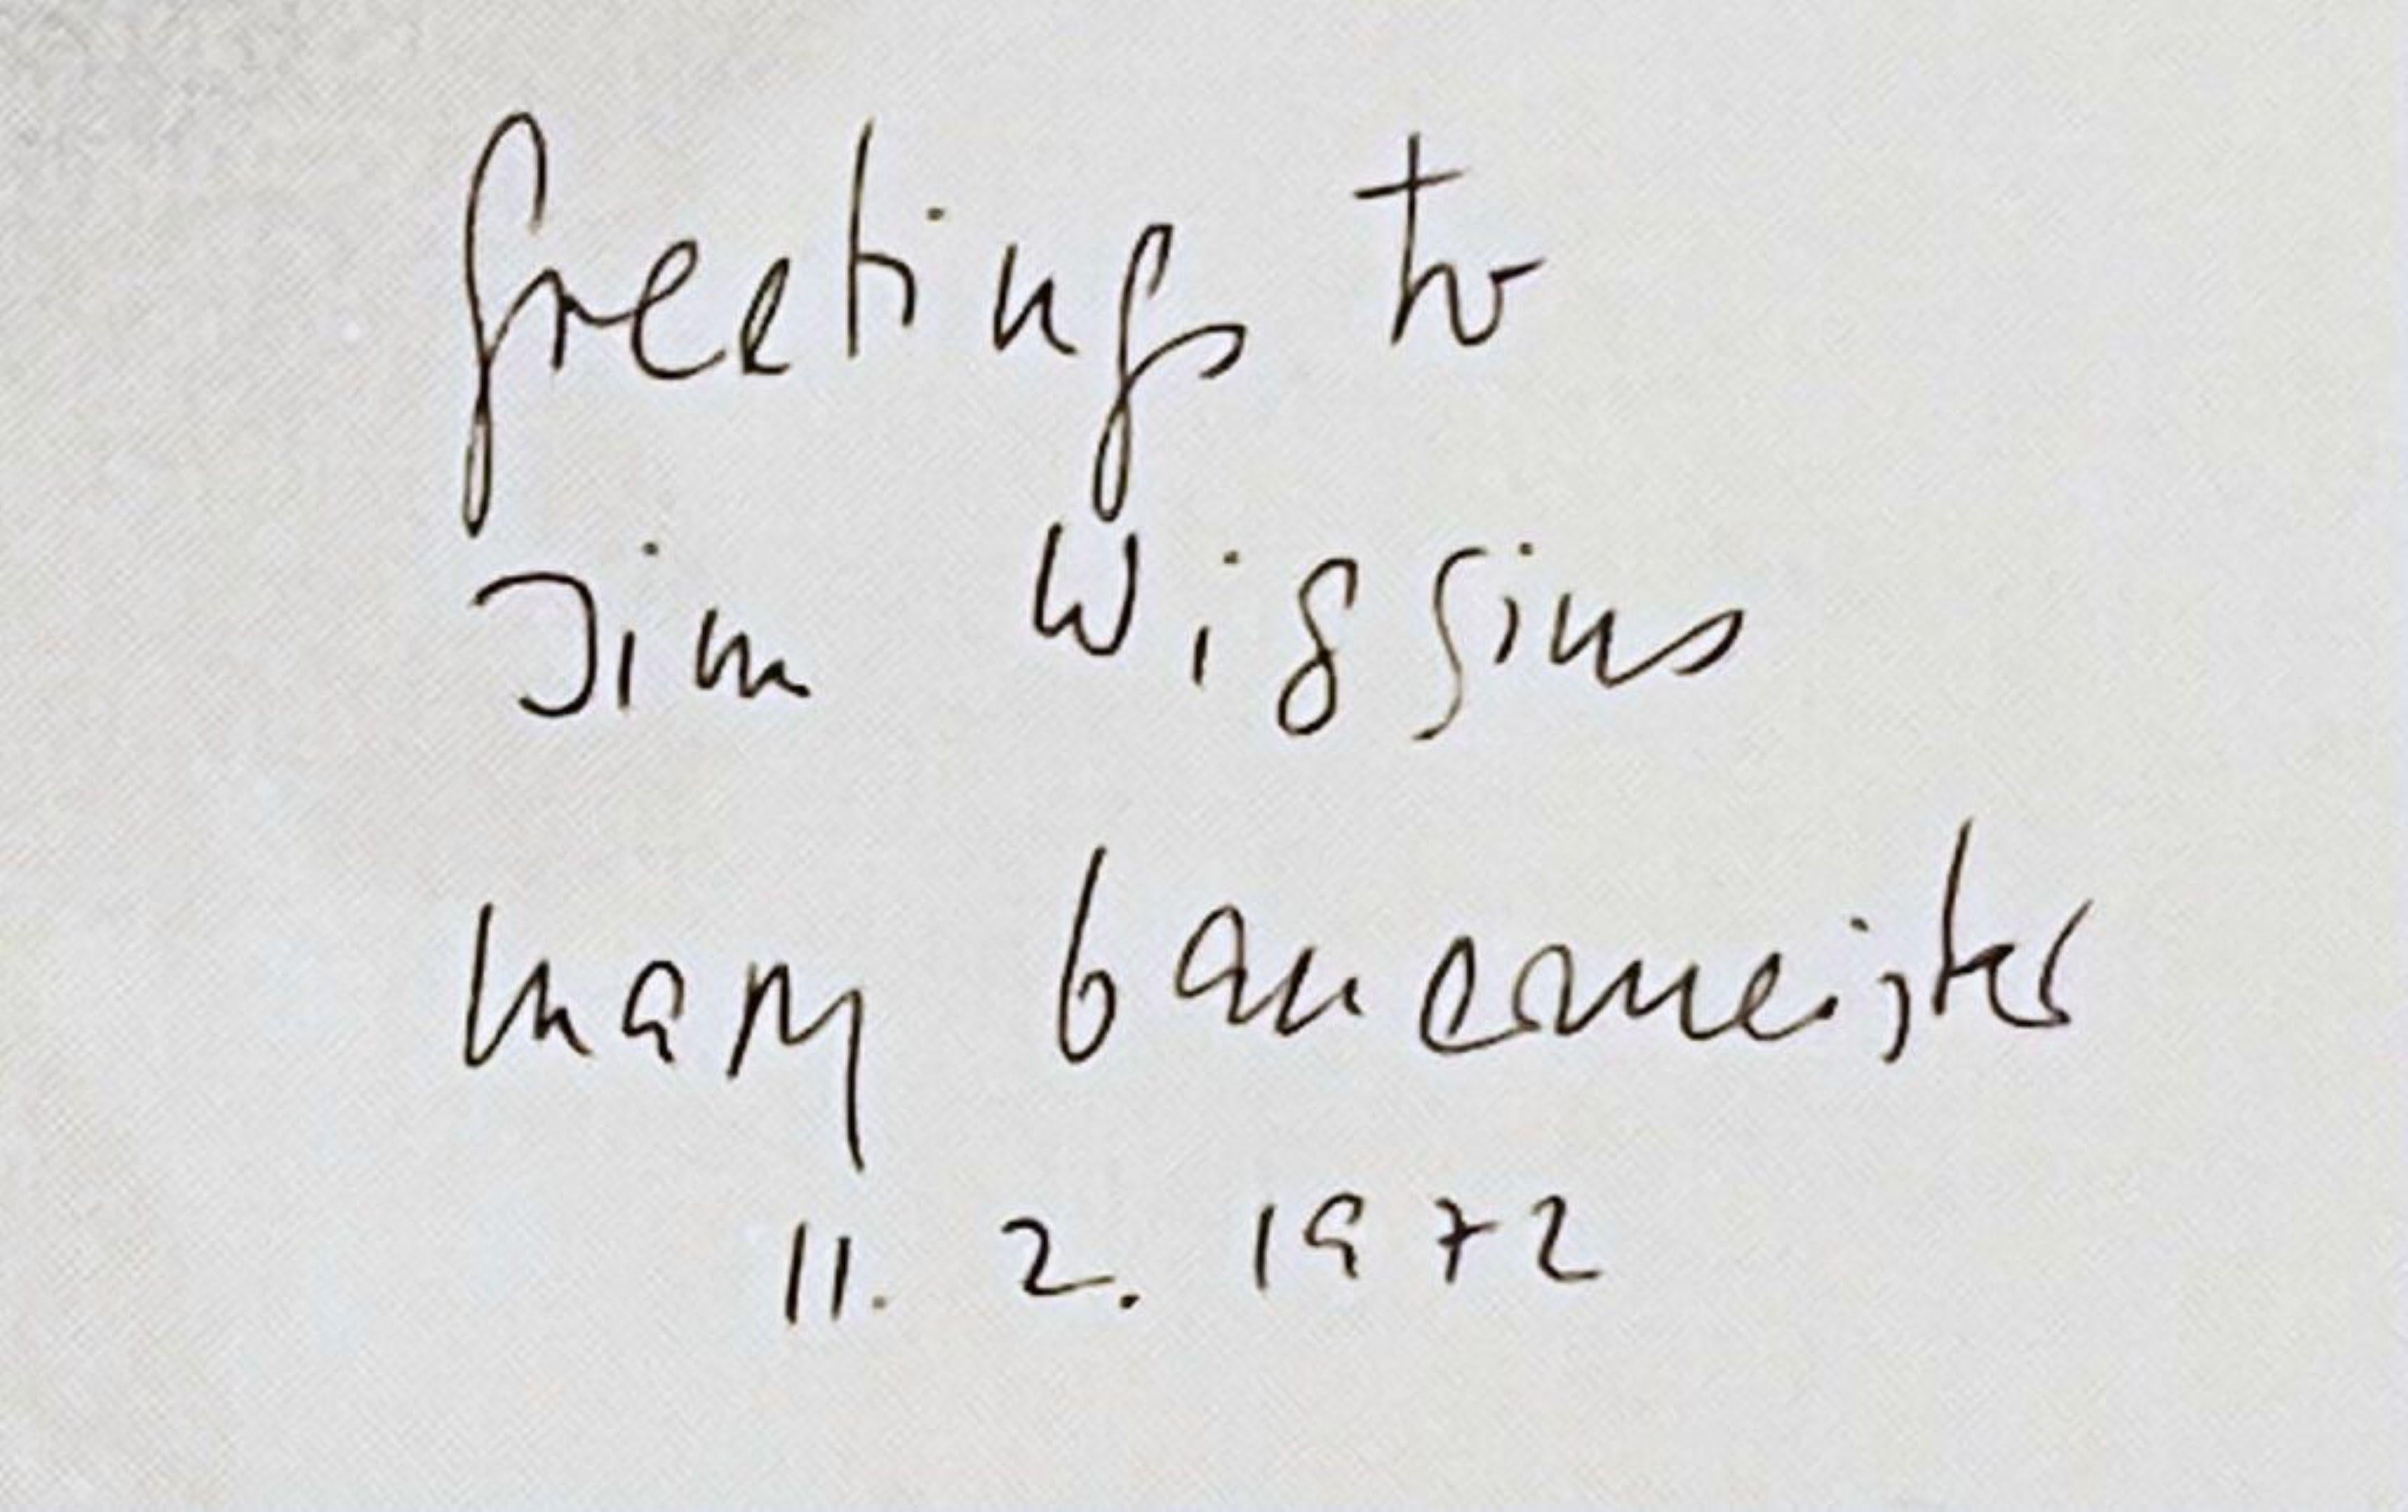 greetings to
Jim Wiggins
mary bauermeister
11. 2. 1972